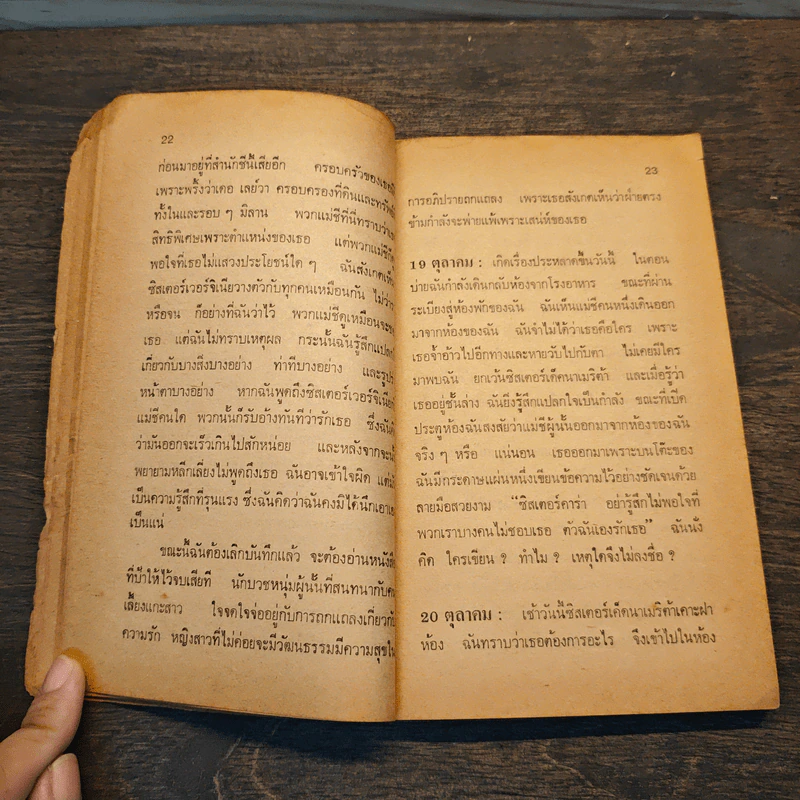 22
ก่อนมาอยู่ที่สำนักชีนี้เสียอีก ครอบครัวของเธอ
เพราะพรั่งว่าเดอ เลย์วา ครอบครองที่ดินและทรัพย์
ทั้งในและรอบ ๆ มิลาน พวกแม่ชีที่นี่ทราบว่า
สิทธิพิเศษเพราะตำแหน่งของเธอ แต่พวกแม่ชี
พอใจที่เธอไม่แสวงประโยชน์ใด ๆ ฉันสังเกตเห็น
ซิสเตอร์เวอร์จิเนียวางตัวกับทุกคนเหมือนกัน ไม่ว่า
หรือจน ก็อย่างที่ฉันว่าไว้ พวกแม่ชีดูเหมือนจะ
เธอ แต่ฉันไม่ทราบเหตุผล กระนั้นฉันรู้สึกแปลก
เกี่ยวกับบางสิ่งบางอย่าง ท่าทีบางอย่าง และรูป
หน้าตาบางอย่าง หากฉันพูดถึงซิสเตอร์เวอร์จิเนีย
แม่ชีคนใด พวกนั้นก็รับอ้างทันทีว่ารักเธอ ซึ่งฉัน
ว่ามันออกจะเร็วเกินไปสักหน่อย และหลังจากจะ
พยายามหลีกเลี่ยงไม่พูดถึงเธอ ฉันอาจเข้าใจผิด แต่
เป็นความรู้สึกที่รุนแรง ซึ่งฉันคิดว่าฉันคงมิได้นึกเอา
เป็นแน่
ขณะนี้ฉันต้องเลิกบันทึกแล้ว จะต้องอ่านหนังสือ
ที่ป้าให้ไว้จบเสียที นักบวชหนุ่มผู้นั้นที่สนทนากับ
เลี้ยงแกะสาว ใจจดใจจ่ออยู่กับการถกแถลงเกี่ยวกับ
ความรัก หญิงสาวที่ไม่ค่อยจะมีวัฒนธรรมมีความสุขใน
23
การอภิปรายถกแถลง เพราะเธอสังเกตเห็นว่าฝ่ายตรง
ข้ามกำลังจะพ่ายแพ้เพราะเสน่ห์ของเธอ
19 ตุลาคม : เกิดเรื่องประหลาดขึ้นวันนี้ ในตอน
บ่ายฉันกำลังเดินกลับห้องจากโรงอาหาร ขณะที่ผ่าน
ระเบียงสู่ห้องพักของฉัน ฉันเห็นแม่ชีคนหนึ่งเดินออก
มาจากห้องของฉัน ฉันจำไม่ได้ว่าเธอคือใคร เพราะ
เธอจ้ำอ้าวไปอีกทางและหายวับไปกับตา ไม่เคยมีใคร
มาพบฉัน ยกเว้นซิสเตอร์เด็คนาเมริต้า และเมื่อรู้ว่า
เธออยู่ชั้นล่าง ฉันยิ่งรู้สึกแปลกใจเป็นกำลัง ขณะที่เปิด
ประตูห้องฉันสงสัยว่าแม่ชีผู้นั้นออกมาจากห้องของฉัน
จริง ๆ หรือ แน่นอน เธอออกมาเพราะบนโต๊ะของ
ฉันมีกระดาษแผ่นหนึ่งเขียนข้อความไว้อย่างชัดเจนด้วย
ลายมือสวยงาม “ซิสเตอร์คาร่า อย่ารู้สึกไม่พอใจที่
พวกเราบางคนไม่ชอบเธอ ตัวฉันเองรักเธอ” ฉันนั่ง
คิด ใครเขียน ? ทำไม ? เหตุใดจึงไม่ลงชื่อ ?
20 ตุลาคม : เช้าวันนี้ซิสเตอร์เด็คนาเมริต้าเคาะฝา
ห้อง ฉันทราบว่าเธอต้องการอะไร จึงเข้าไปในห้อง